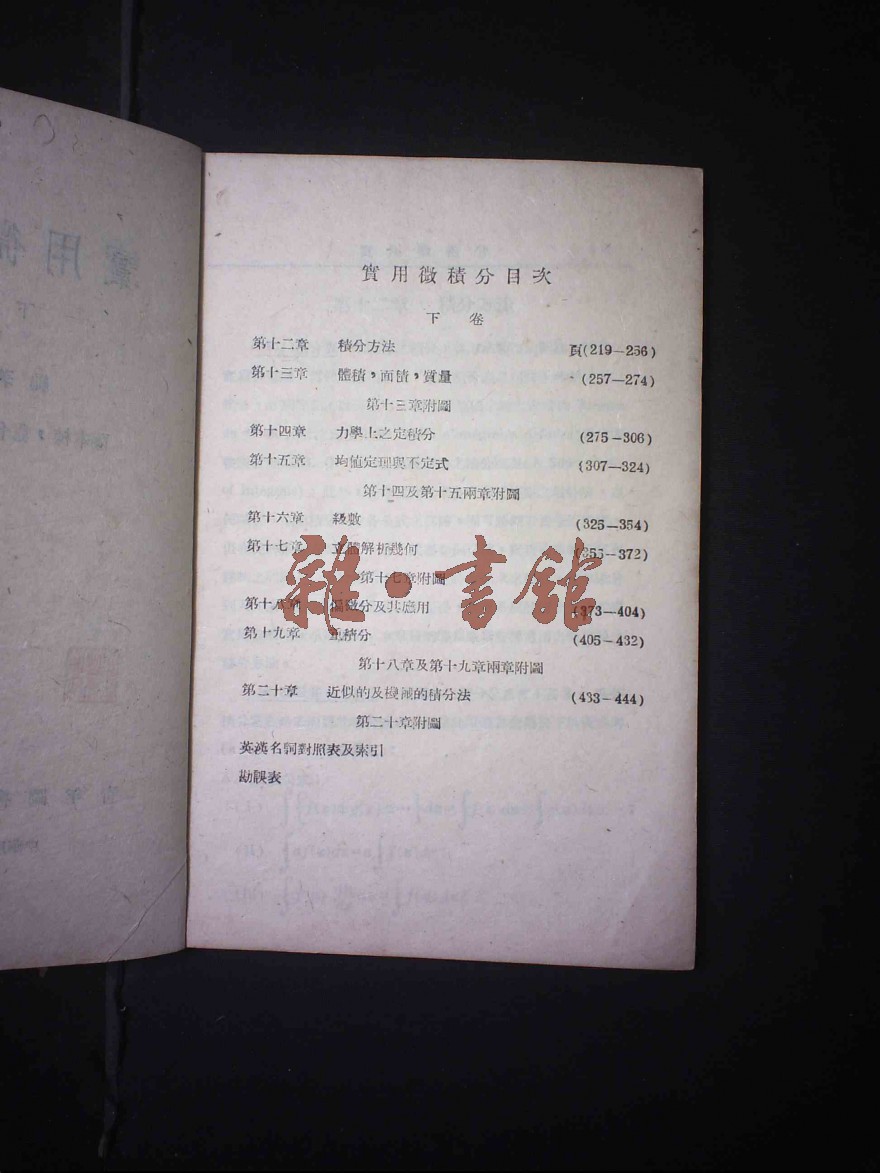 實用微積分目次
下 卷
第十二章 積分方法 頁(219—256)
第十三章 體積，面積，質量 (257—274)
第十三章附圖
第十四章 力學上之定積分 (275—306)
第十五章 均值定理與不定式 (307—324)
第十四及第十五兩章附圖
第十六章 級數 (325—354)
第十七章 立體解析幾何 (355—372)
第十七章附圖
第十八章 偏微分及其應用 (373—404)
第十九章 重積分 (405—432)
第十八章及第十九章兩章附圖
第二十章 近似的及機誡的積分法 (433—444)
第二十章附圖
英漢名詞對照表及索引
勘誤表
雜·書館